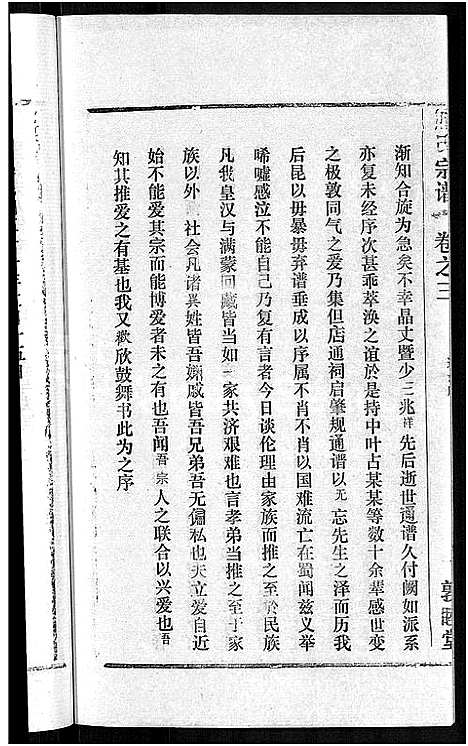 氏宗谱 卷之三
敦睦堂
渐知合旋为急矣不幸晶丈暨少三兆祥先后逝世通谱久付阙如派系
亦复未经序次甚乖萃涣之谊於是持中叶占某某等数十余辈感世变
之极敦同气之爱乃集但店通祠启肇规通谱以无忘先生之泽而历我
后昆以毋暴毋弃谱垂成以序属不肖不肖以国难流亡在蜀闻兹义举
唏嘘感泣不能自己乃复有言者今日谈伦理由家族而推之至於民族
凡我皇汉与满蒙回藏皆当如一家共济艰难也言孝弟当推之至于家
族以外 社会凡诸异姓皆吾姻戚皆吾兄弟吾无偏私也夫立爱自近
始不能爱其宗而能博爱者未之有也吾闻吾宗人之联合以兴爱也吾
知其推爱之有基也我又歡欣鼓舞书此为之序